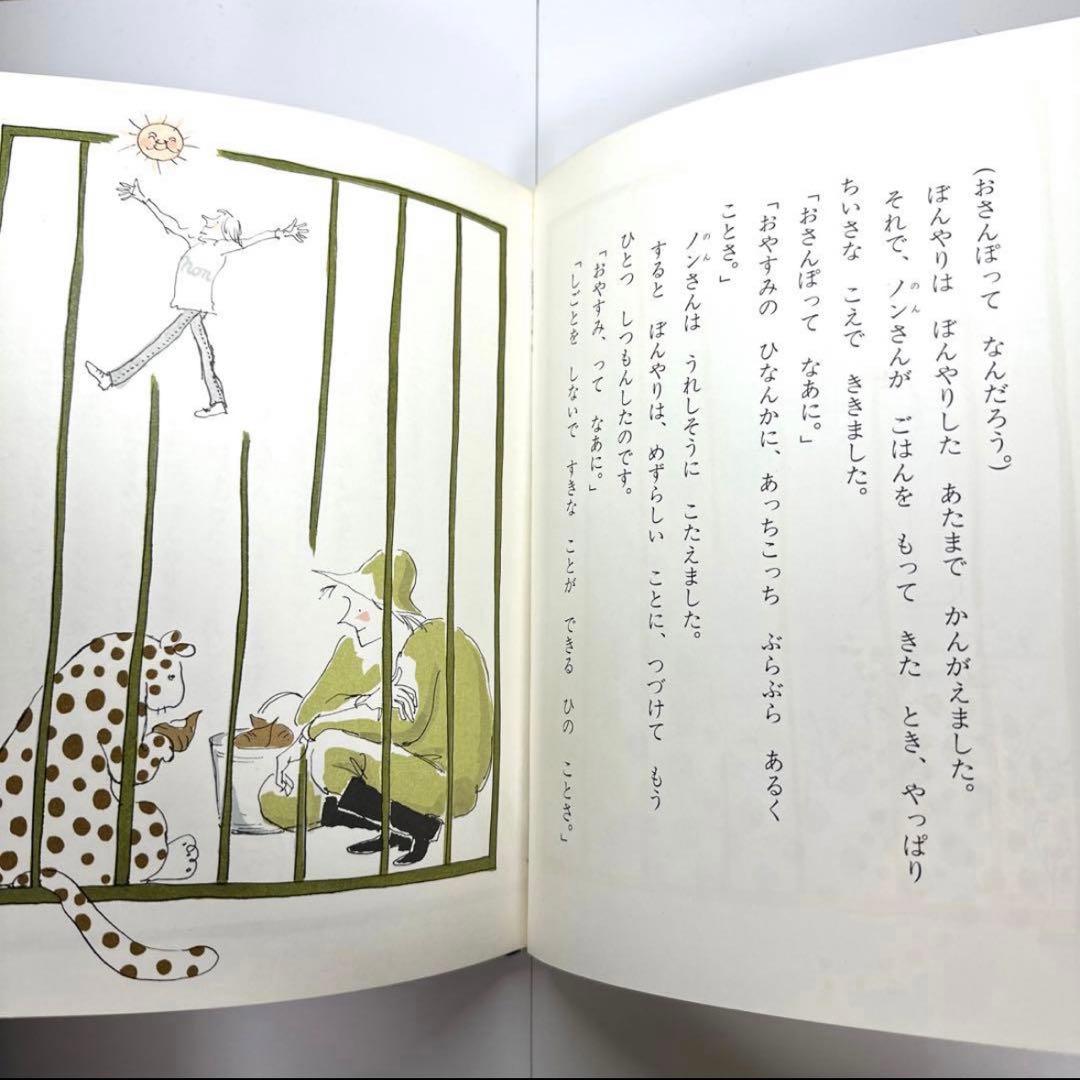 (おさんぽって なんだろう。)
ぼんやりは ぼんやりした あたまで かんがえました。
それで、ノンさんが ごはんを もって きた とき、やっぱり
ちいさな こえで ききました。
「おさんぽって なあに。」
「おやすみの ひなんかに、あっちこっち ぶらぶら あるく
ことさ。」
ノンさんは うれしそうに こたえました。
すると ぼんやりは、めずらしい ことに、つづけて もう
ひとつ しつもんしたのです。
「おやすみ、って なあに。」
「しごとを しないで すきな ことが できる ひの ことさ。」
のん
のん
non